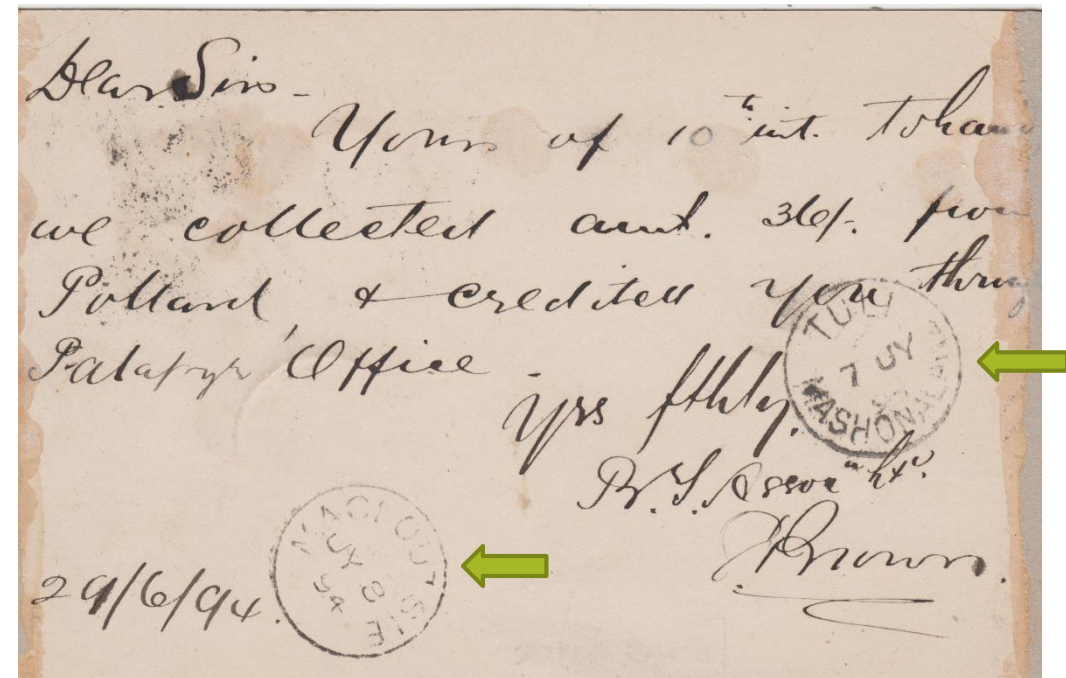 Dear Sirs -
Yours of 10th inst. To hand
we collected amt. 36/. from
Pollard, & credited you throug
Palapye Office -
Yrs fthly.
B. S. Assocn Ltd.
Brown.
29/6/94.
TULI
7 JY
MASHONALAND
MACLOUTSIE
JY 8
94